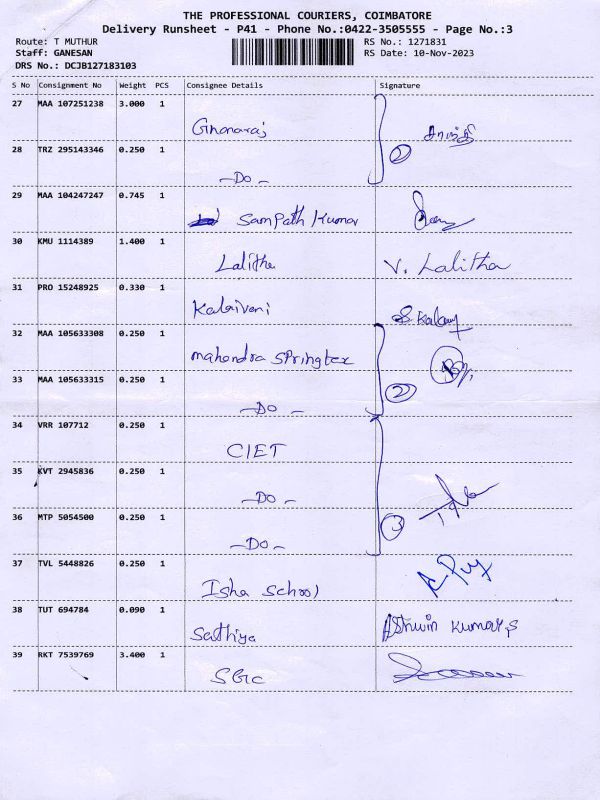 THE PROFESSIONAL COURIERS, COIMBATORE
Delivery Runsheet - P41 - Phone No.:0422-3505555 - Page No.:3
Route: T MUTHUR RS No.: 1271831
Staff: GANESAN RS Date: 10-Nov-2023
DRS No.: DCJB127183103
S No Consignment No Weight PCS Consignee Details Signature
27 MAA 107251238 3.000 1
28 TRZ 295143346 0.250 1 -Do- 1
29 MAA 104247247 0.745 1 Sampath Kumar
30 KMU 1114389 1.400 1 Lalitha V. Lalitha
31 PRO 15248925 0.330 1 Kalaivani
32 MAA 105633308 0.250 1 mahendra springtex
33 MAA 105633315 0.250 1 -Do- 2
34 VRR 107712 0.250 1 CIET
35 KVT 2945836 0.250 1 -Do-
36 MTP 5054500 0.250 1 -Do- 3
37 TVL 5448826 0.250 1 Isha School
38 TUT 694784 0.090 1 Sathiya Ashwin Kumar.S
39 RKT 7539769 3.400 1